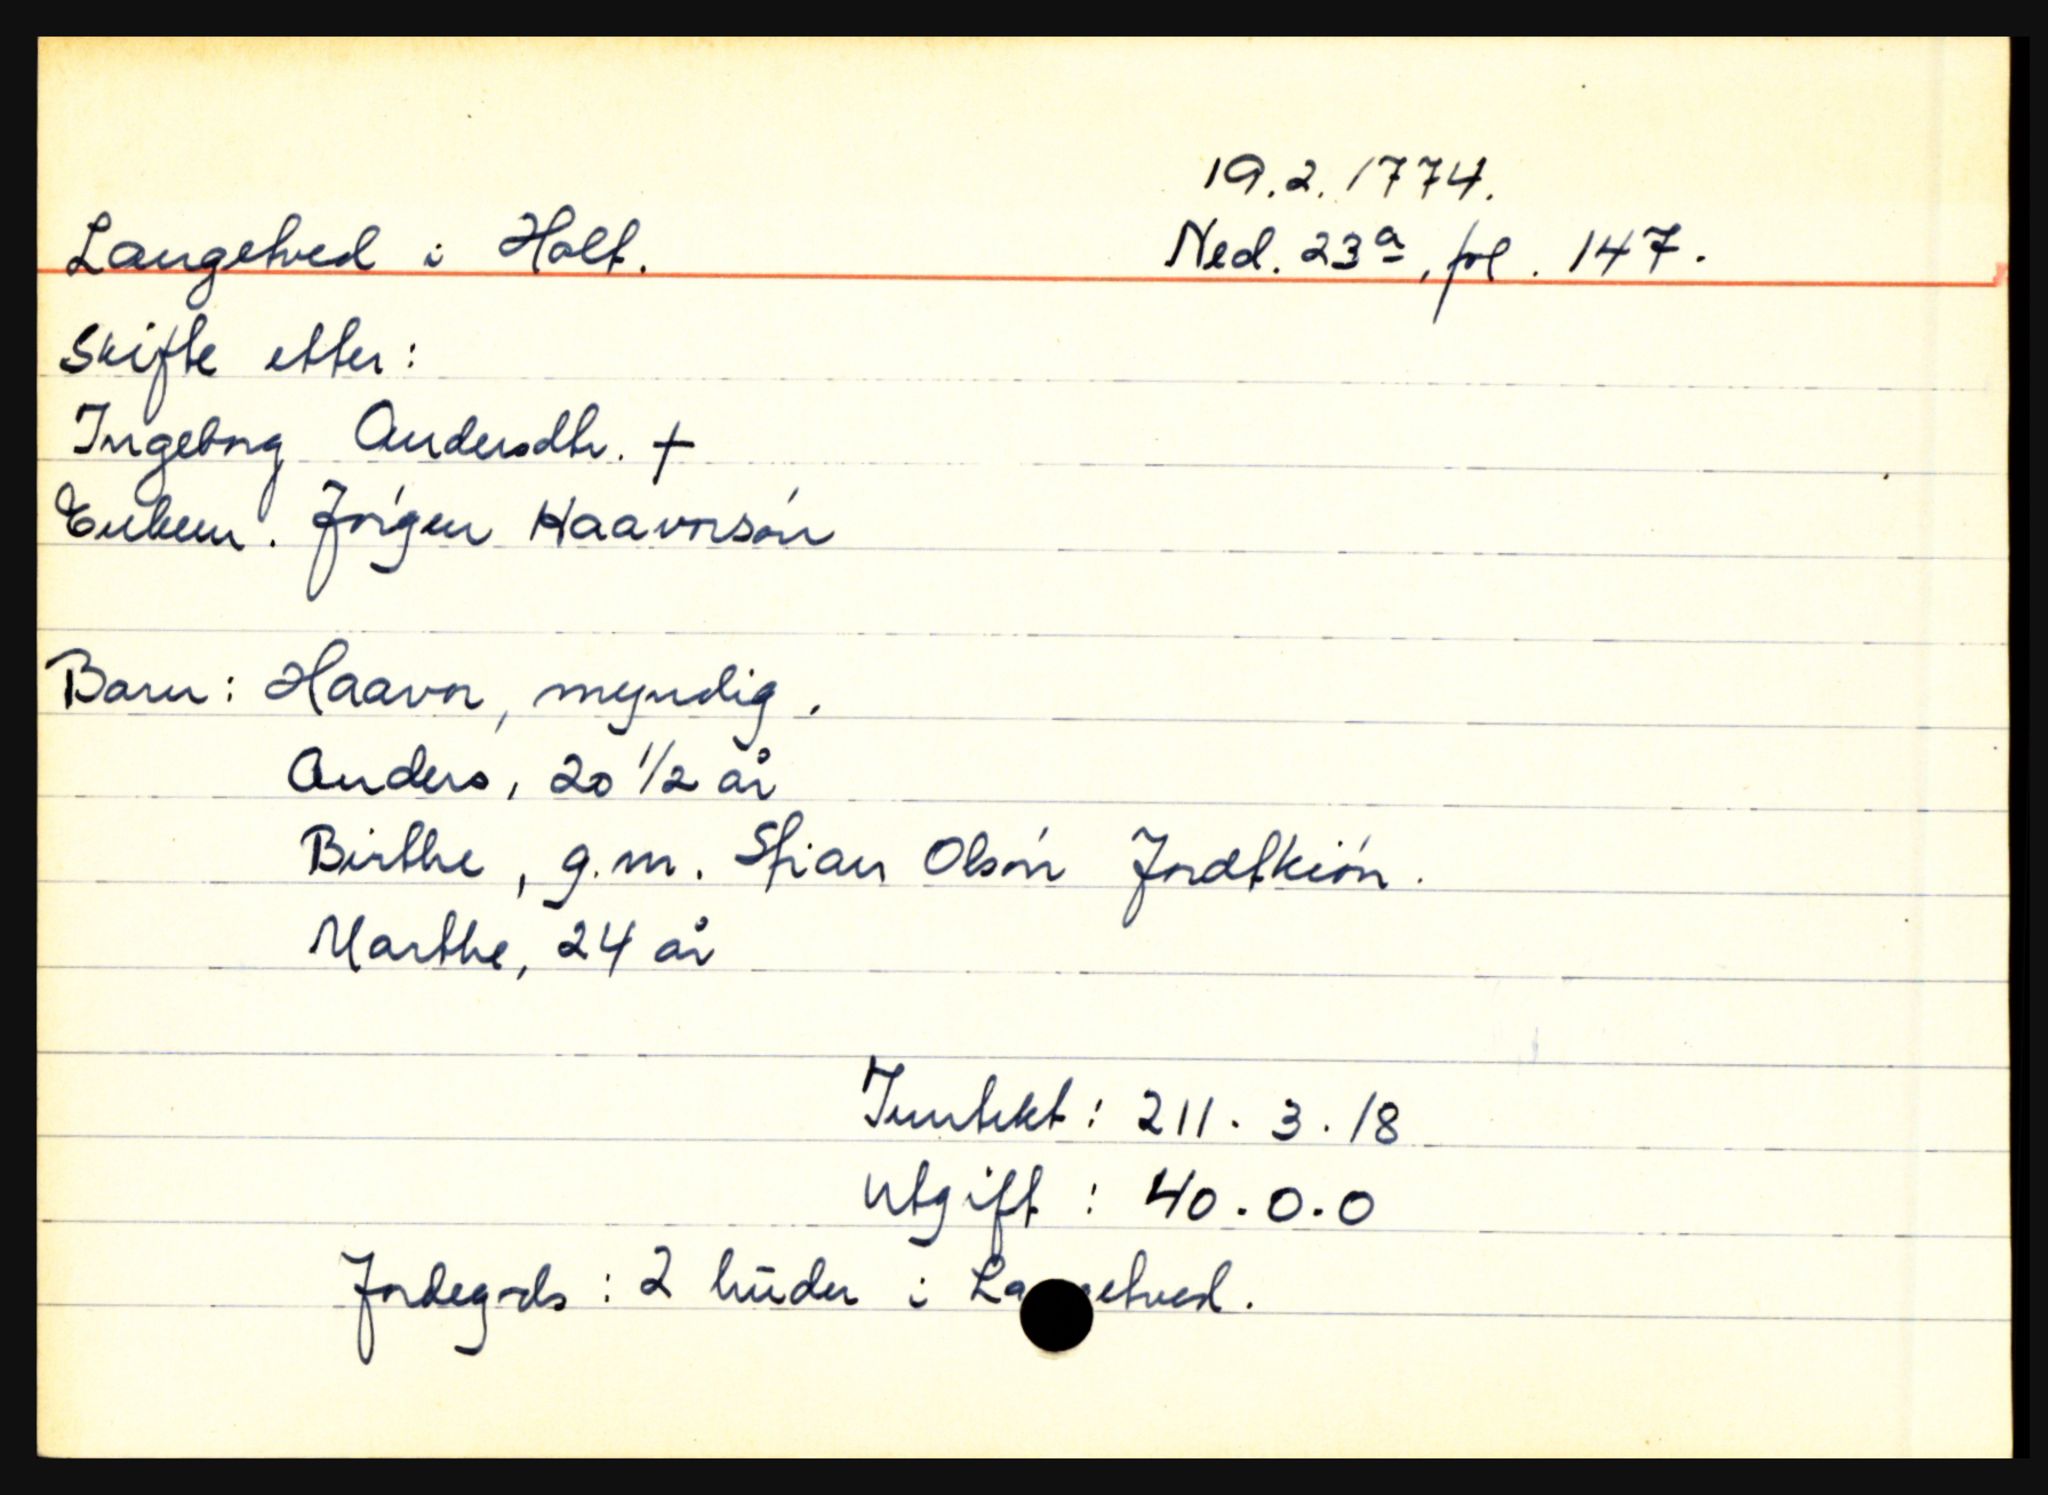 19.2.1774.
Langetved i Holt. Ned. 23a, fol. 147.
Skifte etter:
Ingeborg Andersdtr. †
Enkem. Jørgen Haavorsøn
Barn: Haavor, myndig.
Anders, 20 1/2 år
Birthe, g.m. Stian Olsøn Jordtkiøn.
Marthe, 24 år
Inntekt: 211. 3. 18
Utgift: 40.0.0
Jordegods: 2 huder i Langetved.